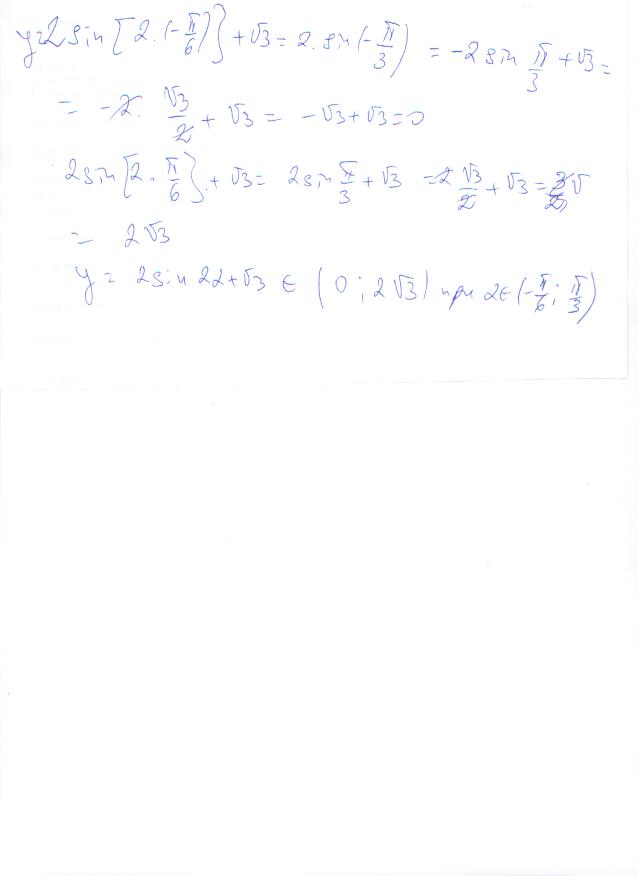 y=2 sin [2·(-π/6)] + √3 = 2·sin(-π/3) = -2 sin π/3 + √3 =
= -2· √3/2 + √3 = -√3+√3=0
2sin[2·π/6] + √3 = 2sin π/3 + √3 = 2 √3/2 + √3 =
= 2√3
y = 2sin 2α+√3 ∈ (0; 2√3) при α∈(-π/6; π/3)